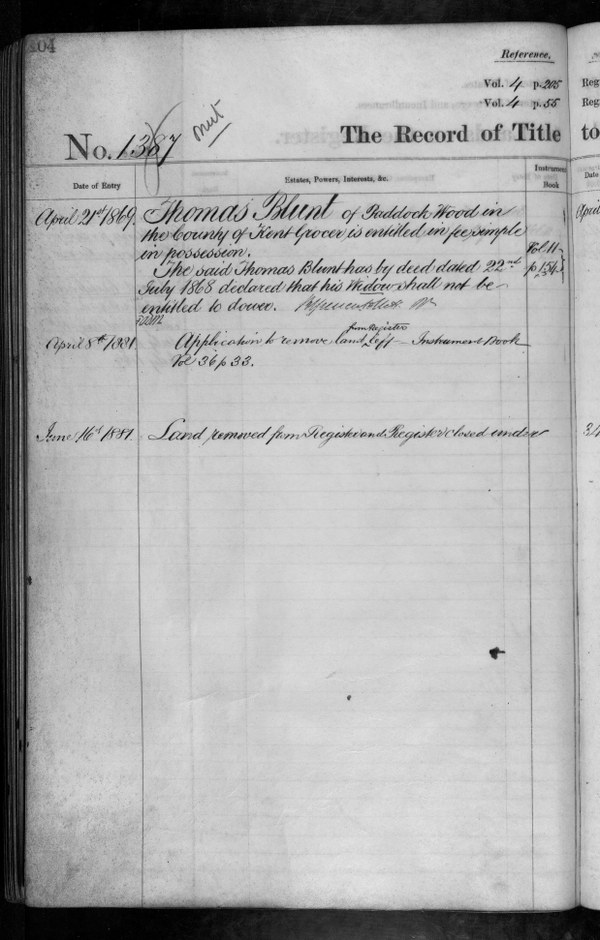 204
Reference.
Vol. 4 p. 205
Vol. 4 p. 55
No. 1367
The Record of Title
Date of Entry
Estates, Powers, Interests, &c.
Instrument Book
April 21st 1869.
Thomas Blunt of Paddock Wood in
the County of Kent Grocer is entitled in fee simple
in possession.
Vol. 11
The said Thomas Blunt has by deed dated 22nd
p 154
July 1868 declared that his Widow shall not be
entitled to dower.
April 8th 1881
Application to remove land from Register left – Instrument Book
Vol 36 p 33.
June 16th 1881
Land removed from Register and Register closed under
Reg
Reg
to
Date
April